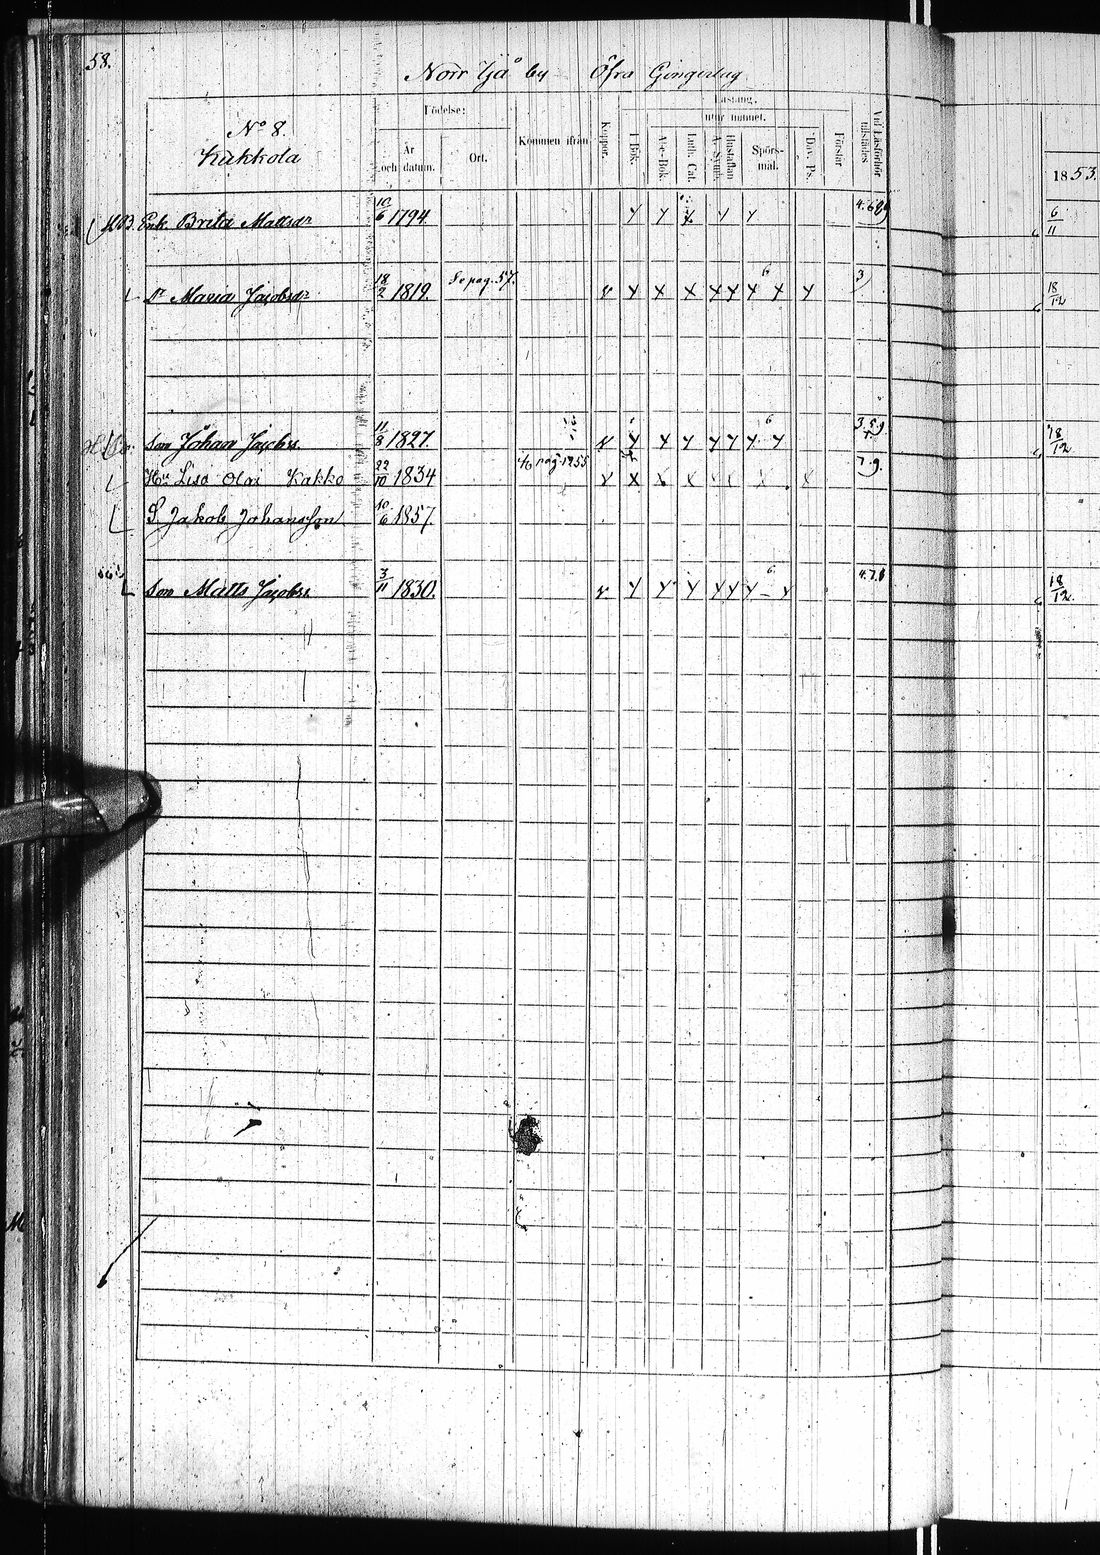 58.
Norr Yjå by Öfra Gångerlag
No 8.
Kakkola
Födelse:
År och datum.
Ort.
Kommen ifrån
Koppor.
Läsning,
utur minnet.
I Bok.
A-b-c-Bok.
Luth. Cat.
Hustaflan
A. Symb.
Spörs-mål.
Dav. Ps.
Förstår
Vid Läsförhör tillstädes
1853.
Enk. Brita Mattsdr 10/6 1794 Y Y Y Y Y 6/11
Dr Maria Jacobsdr 18/2 1819. Se pag. 57. v Y X X Y Y Y 6 Y Y 3 18/12
Son Johan Jacobss. 11/8 1827. v Y Y Y Y Y Y 6 Y 3.5.9. 18/12
Hu Lisa Olai Kakko 22/10 1834 pag 1255 v X X X X X X 7.9.
S. Jakob Johansson 10/6 1857.
Son Matts Jacobss 3/11 1830. v Y Y Y Y Y Y 6 – Y 4.7.8 18/12.